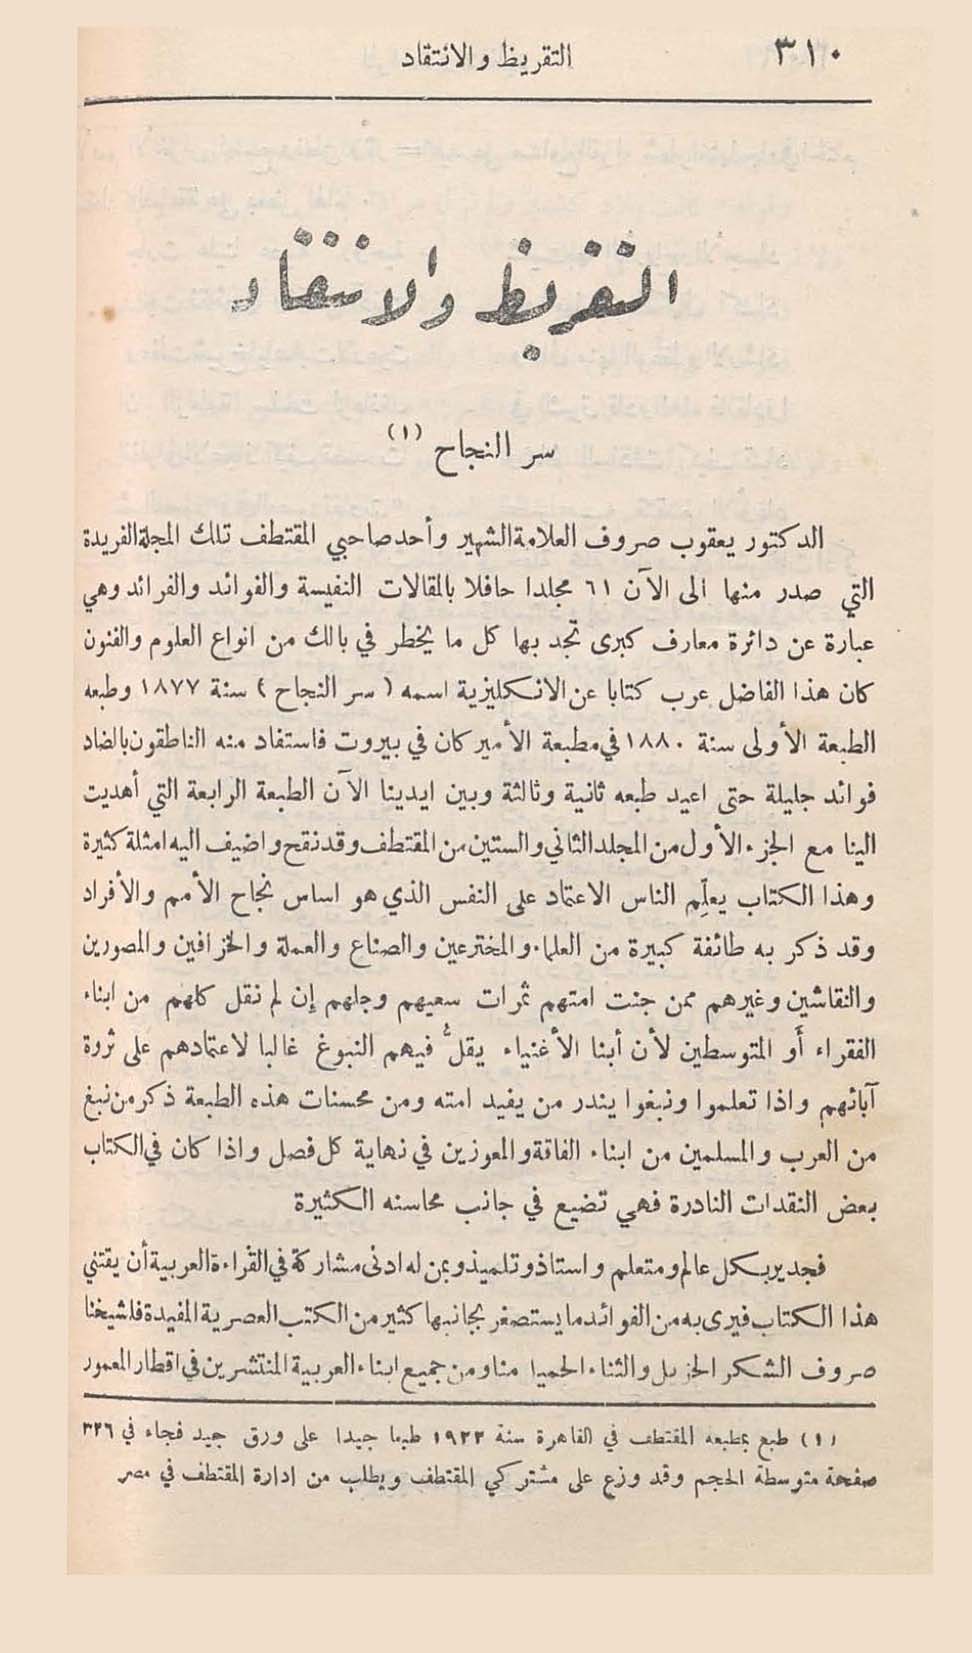 ٣١٠
التقريظ والانتقاد
التقريظ والانتقاد
سر النجاح (١)
الدكتور يعقوب صروف العلامة الشهير وأحد صاحبي المقتطف تلك المجلة الفريدة
التي صدر منها الى الآن ٦١ مجلدا حافلا بالمقالات النفيسة والفوائد والفرائد وهي
عبارة عن دائرة معارف كبرى تجد بها كل ما يخطر في بالك من انواع العلوم والفنون
كان هذا الفاضل عرب كتابا عن الانكليزية اسمه ( سر النجاح ) سنة ١٨٧٧ وطبعه
الطبعة الأولى سنة ١٨٨٠ في مطبعة الأميركان في بيروت فاستفاد منه الناطقون بالضاد
فوائد جليلة حتى اعيد طبعه ثانية وثالثة وبين ايدينا الآن الطبعة الرابعة التي أهديت
الينا مع الجزء الأول من المجلد الثاني والستين من المقتطف وقد نقح واضيف اليه امثلة كثيرة
وهذا الكتاب يعلّم الناس الاعتماد على النفس الذي هو اساس نجاح الأمم والأفراد
وقد ذكر به طائفة كبيرة من العلماء والمخترعين والصناع والعملة والخزافين والمصورين
والنقاشين وغيرهم ممن جنت امتهم ثمرات سعيهم وجلهم إن لم نقل كلهم من ابناء
الفقراء أو المتوسطين لأن أبنا الأغنياء يقلُّ فيهم النبوغ غالبا لاعتمادهم على ثروة
آبائهم واذا تعلموا ونبغوا يندر من يفيد امته ومن محسنات هذه الطبعة ذكر من نبغ
من العرب والمسلمين من ابناء الفاقة والمعوزين في نهاية كل فصل واذا كان في الكتاب
بعض النقدات النادرة فهي تضيع في جانب محاسنه الكثيرة
فجدير بكل عالم ومتعلم واستاذ وتلميذ وبمن له ادنى مشاركة في القراءة العربية أن يقتني
هذا الكتاب فيرى به من الفوائد ما يستصغر بجانبها كثير من الكتب العصرية المفيدة فلشيخنا
صروف الشكر الجزيل والثناء الجميل منا ومن جميع ابناء العربية المنتشرين في اقطار المعمور
(١) طبع بمطبعه المقتطف في القاهرة سنة ١٩٢٣ طبعا جيدا على ورق جيد فجاء في ٣٢٦
صفحة متوسطة الحجم وقد وزع على مشتركي المقتطف ويطلب من ادارة المقتطف في مصر